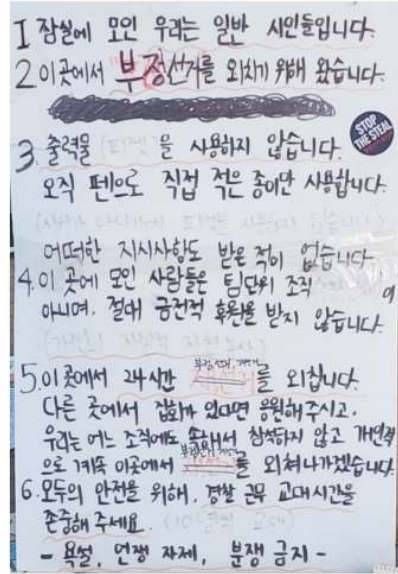 1 잠실에 모인 우리는 일반 시민들입니다.
2 이곳에서 부정선거를 외치기 위해 왔습니다.
STOP
THE STEAL
3. 출력물 을 사용하지 않습니다.
오직 펜으로 직접 적은 종이만 사용합니다.
어떠한 지시사항도 받은 적이 없습니다.
4. 이 곳에 모인 사람들은 팀단위 조직이
아니며, 절대 금전적 후원을 받지 않습니다.
5. 이곳에서 24시간 를 외칩니다.
다른 곳에서 집회가 있다면 응원해주시고,
우리는 어느 조직에도 속해서 참석하지 않고 개인적
으로 계속 이곳에서 를 외쳐나가겠습니다
6. 모두의 안전을 위해, 경찰 근무 교대시간을
존중해 주세요.
- 욕설, 언쟁 자제, 분쟁 금지 -